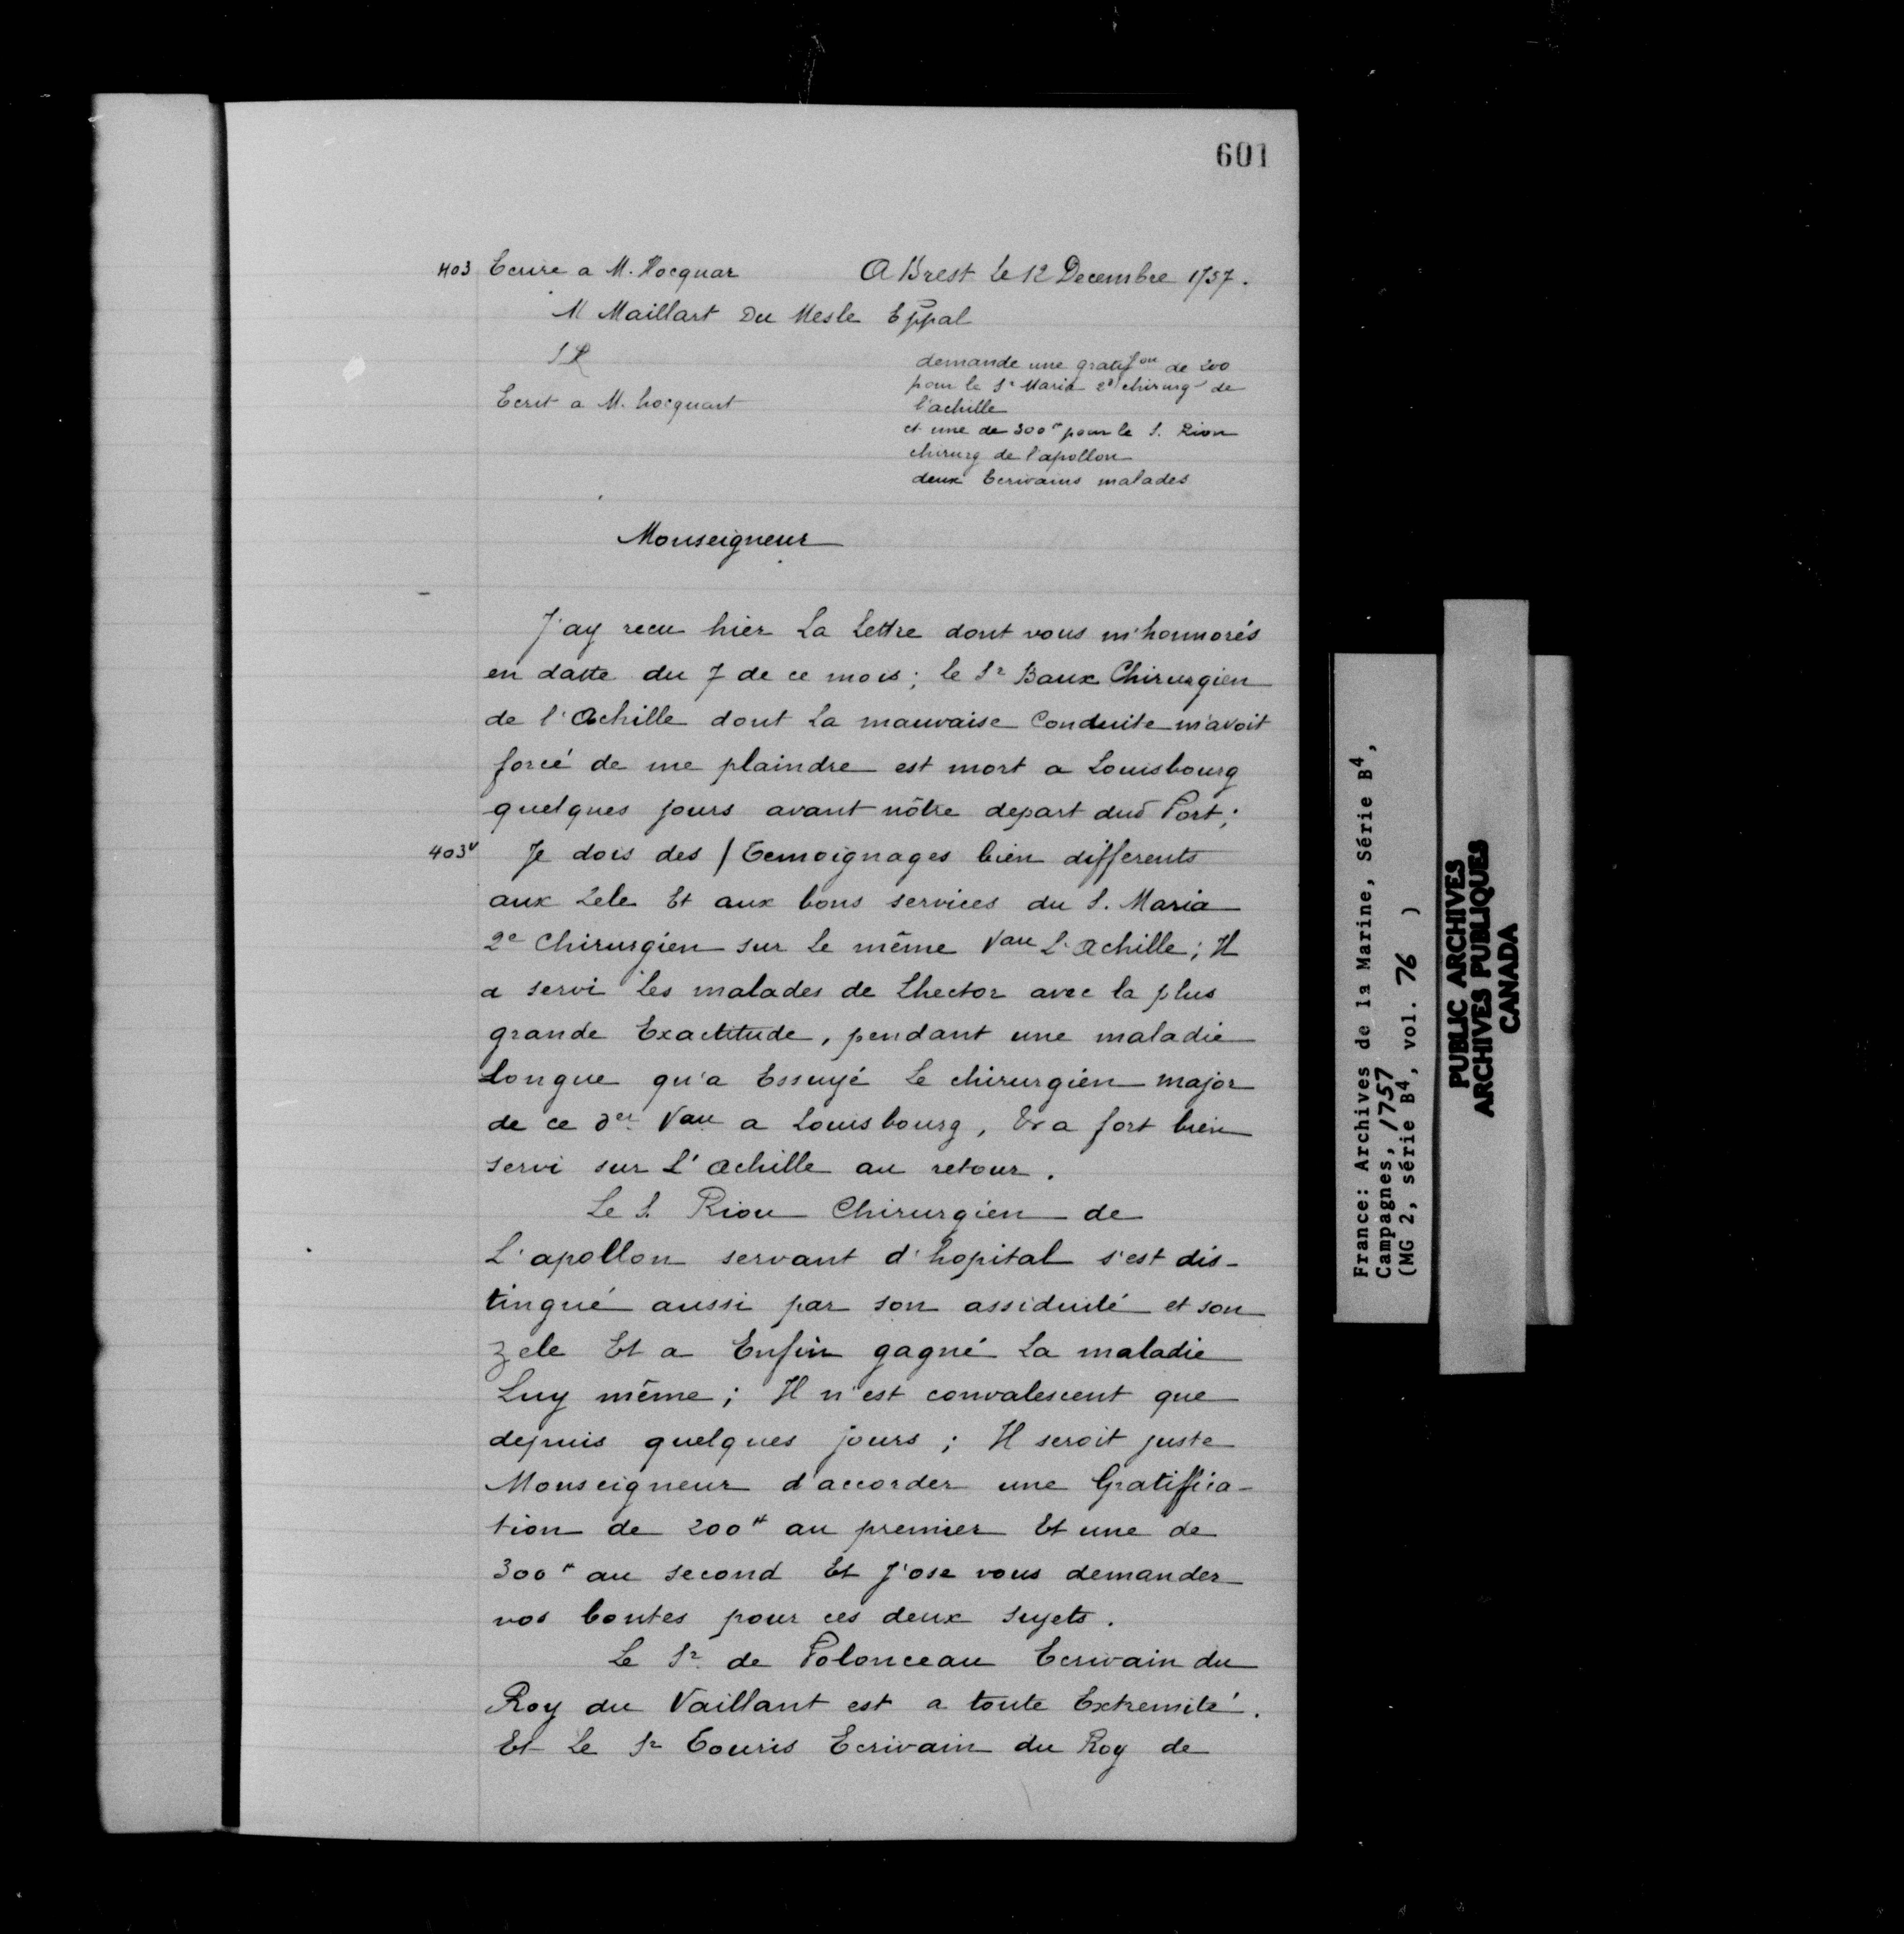 601
403 Ecrire a M. Hocquar A Brest Le 12 Decembre 1757.
M Maillart Du Mesle Eppal
S R
demande une gratifon de 200
pour le Sr Maria 2d chirurg de
Ecrit a M. hocquart
l'achille
et une de 300# pour le S. Riou
chirurg de l'apollon
deux Ecrivains malades
Monseigneur
J'ay recu hier La Lettre dont vous m'honnorés
en datte du 7 de ce mois; le Sr Baux Chirurgien
de l'Achille dont La mauvaise Conduite m'avoit
forcé de me plaindre est mort a Louisbourg
quelques jours avant nôtre depart dud Port;
403v Je dois des / Temoignages bien differents
aux Zele Et aux bons services du S. Maria
2e Chirurgien sur Le même Vau L'Achille; Il
a servi Les malades de Lhector avec la plus
grande Exactitude, pendant une maladie
Longue qu'a Essuyé Le chirurgien major
de ce der Vau a Louisbourg, Et a fort bien
servi sur L'Achille au retour.
Le S. Riou Chirurgien de
L'apollon servant d'hopital s'est dis-
tingué aussi par son assiduité et son
zele Et a Enfin gagné La maladie
Luy même; Il n'est convalescent que
depuis quelques jours; Il seroit juste
Monseigneur d'accorder une Gratiffica-
tion de 200# au premier Et une de
300# au second Et J'ose vous demander
vos bontes pour ces deux sujets.
Le Sr de Polonceau Ecrivain du
Roy du Vaillant est a toute Extremité.
Et Le Sr Touris Ecrivain du Roy de
France: Archives de la Marine, Série B4,
Campagnes, 1757
(MG 2, série B4, vol. 76 )
PUBLIC ARCHIVES
ARCHIVES PUBLIQUES
CANADA